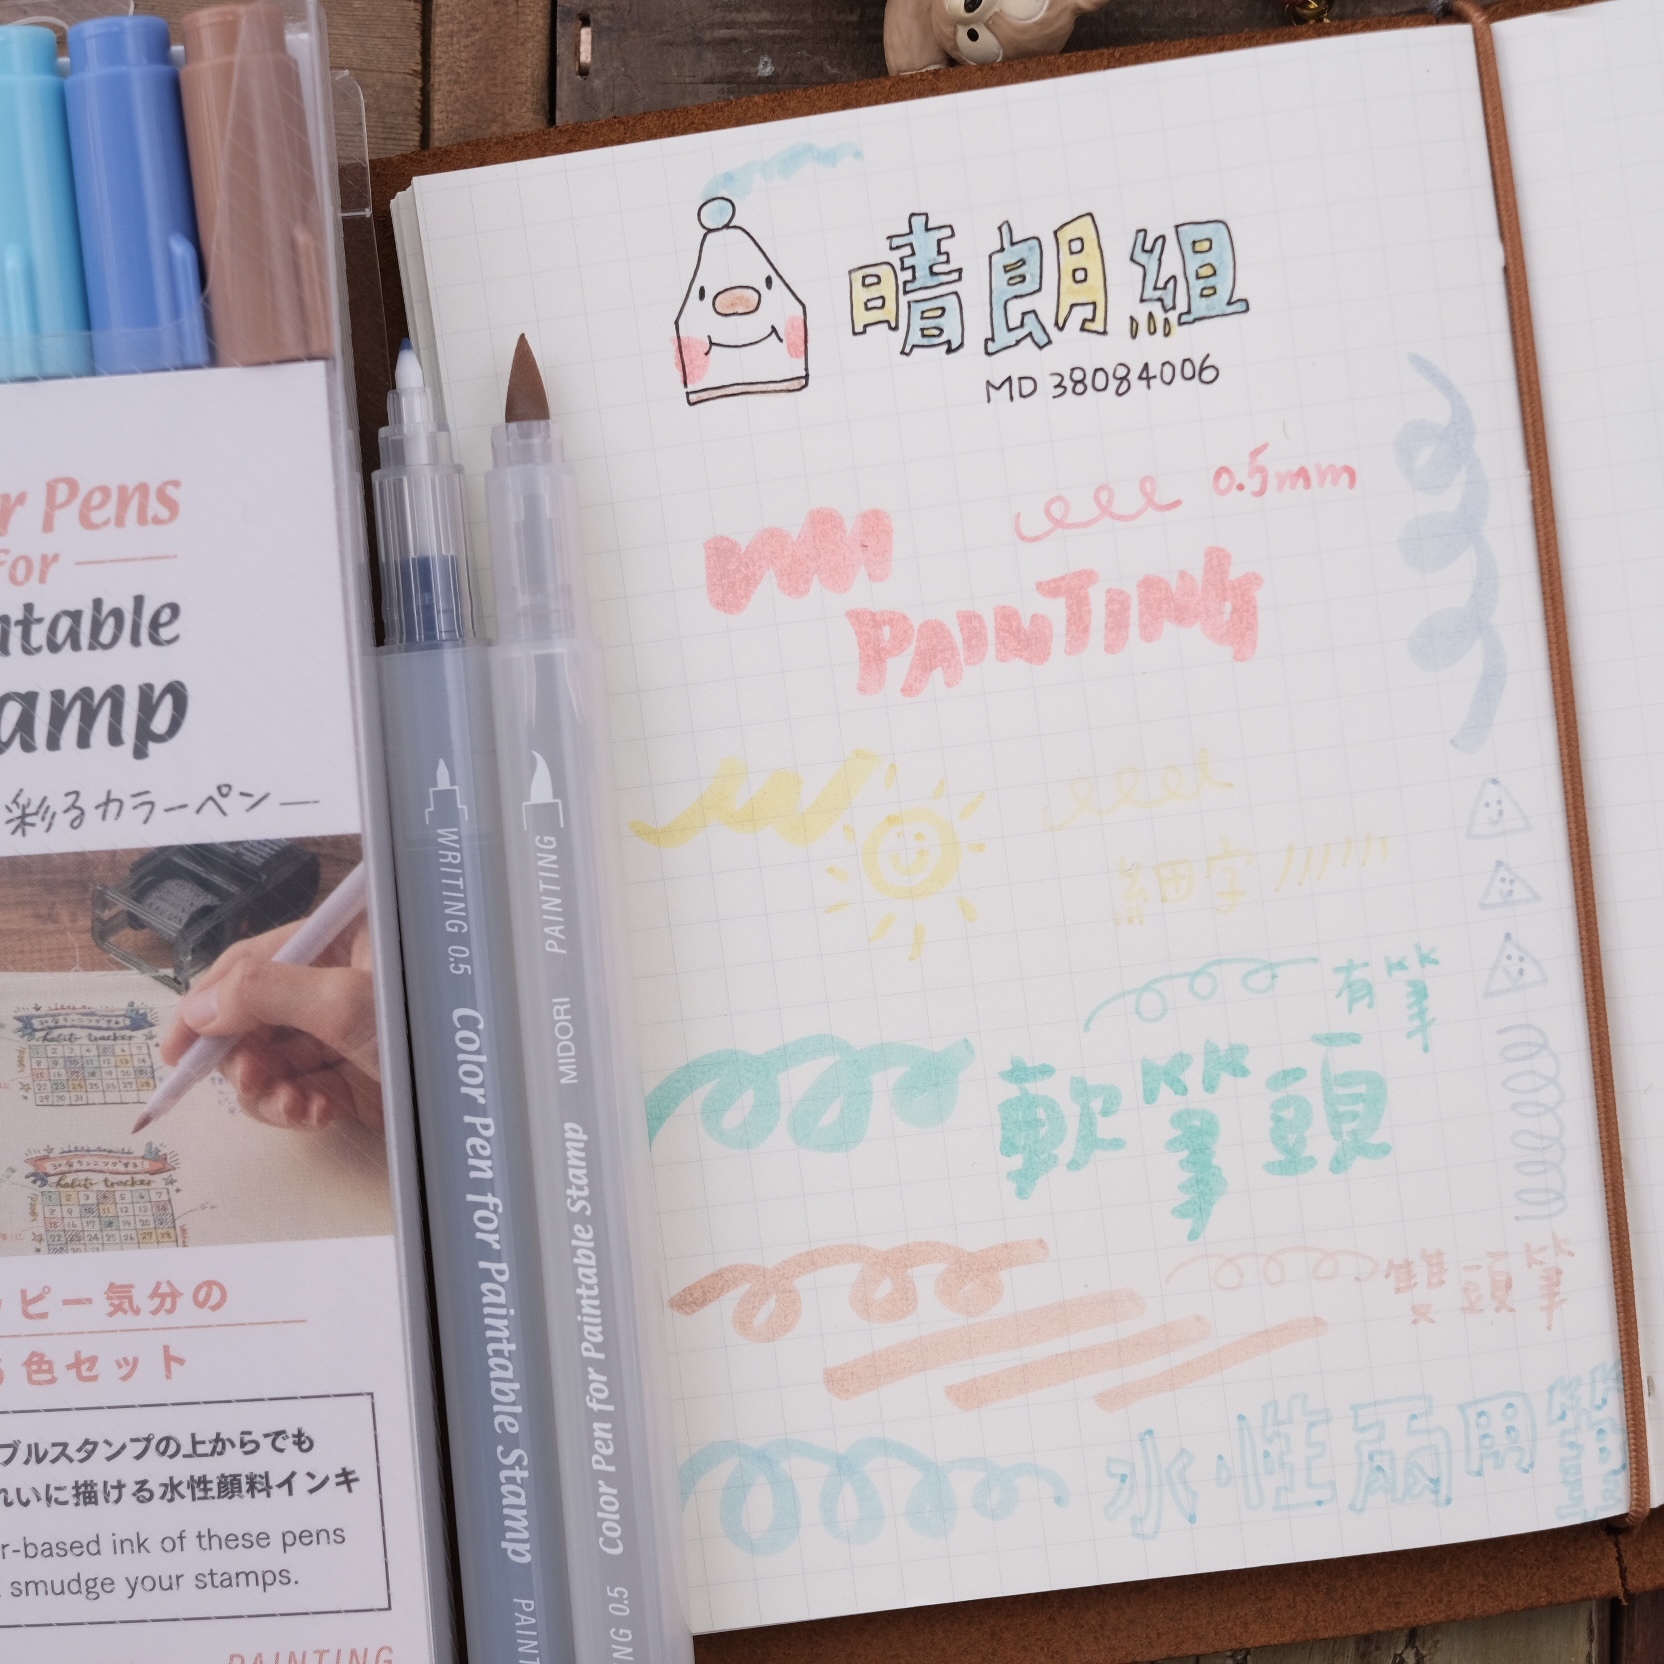 r Pens
For
table
amp
彩るカラーペン
ピー気分の
色セット
ブルスタンプの上からでも
れいに描ける水性顔料インキ
r-based ink of these pens
smudge your stamps.
PAINTING
WRITING 0.5 Color Pen for Paintable Stamp PAINT
PAINTING MIDORI Color Pen for Paintable Stamp NG 0.5
habit tracker
habit tracker
晴朗組
MD 38084006
0.5mm
PAINTING
細字
有筆
軟筆頭
雙頭筆
水性兩用筆